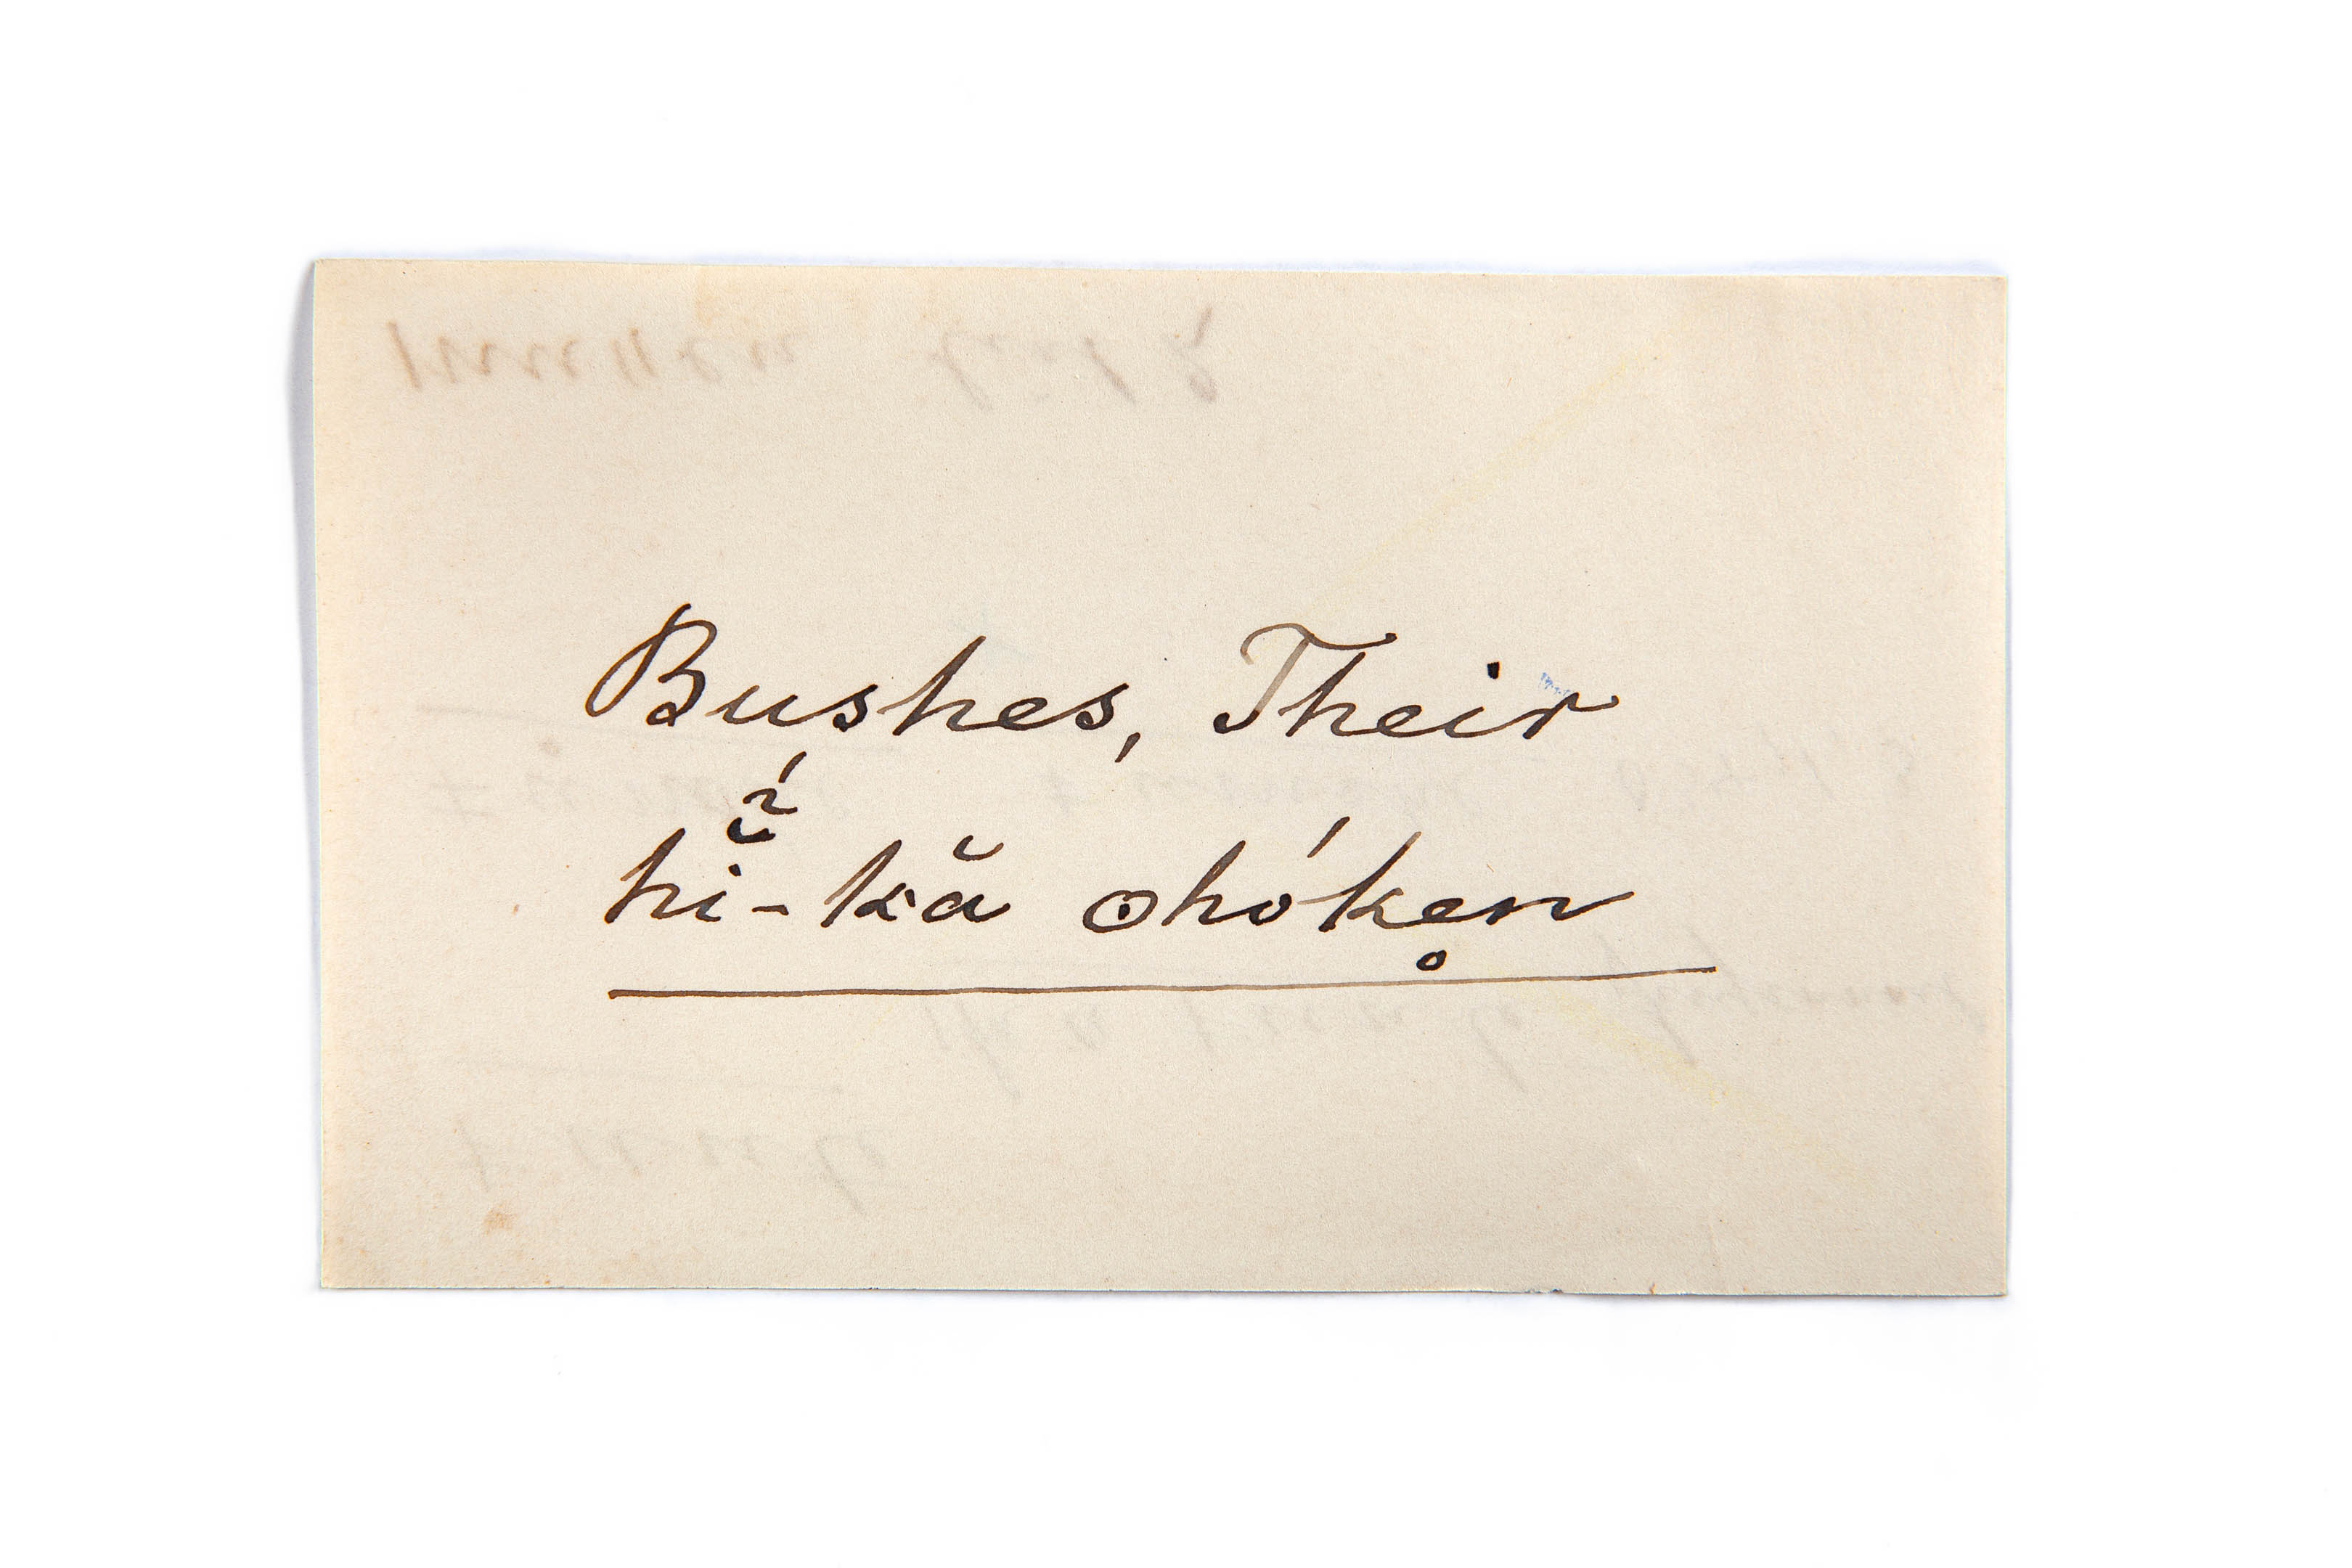 Bushes, Their
hĭ̃́-kă ohóke̥n